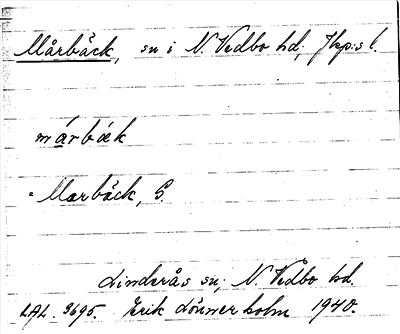 Mårbäck, sn i N. Vedbo hd, Jkp:s l.
márbæk
= Marbäck, S.
Linderås sn, N. Vedbo hd.
LAL. 3695. Erik Lönnerholm 1940.